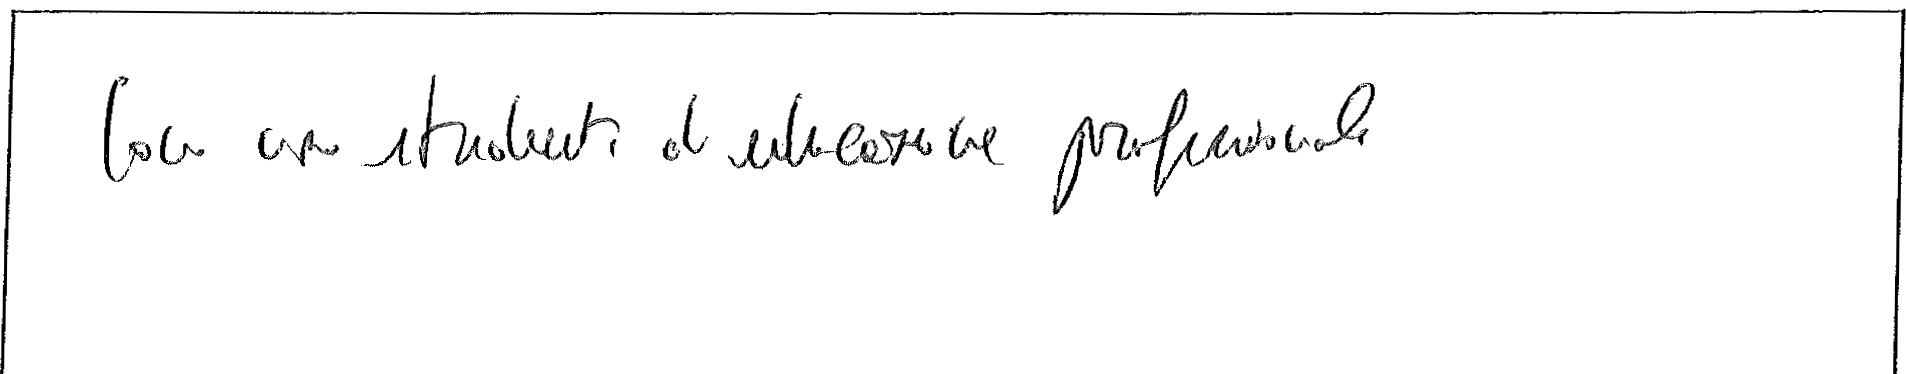 Con studenti di educazione professionale